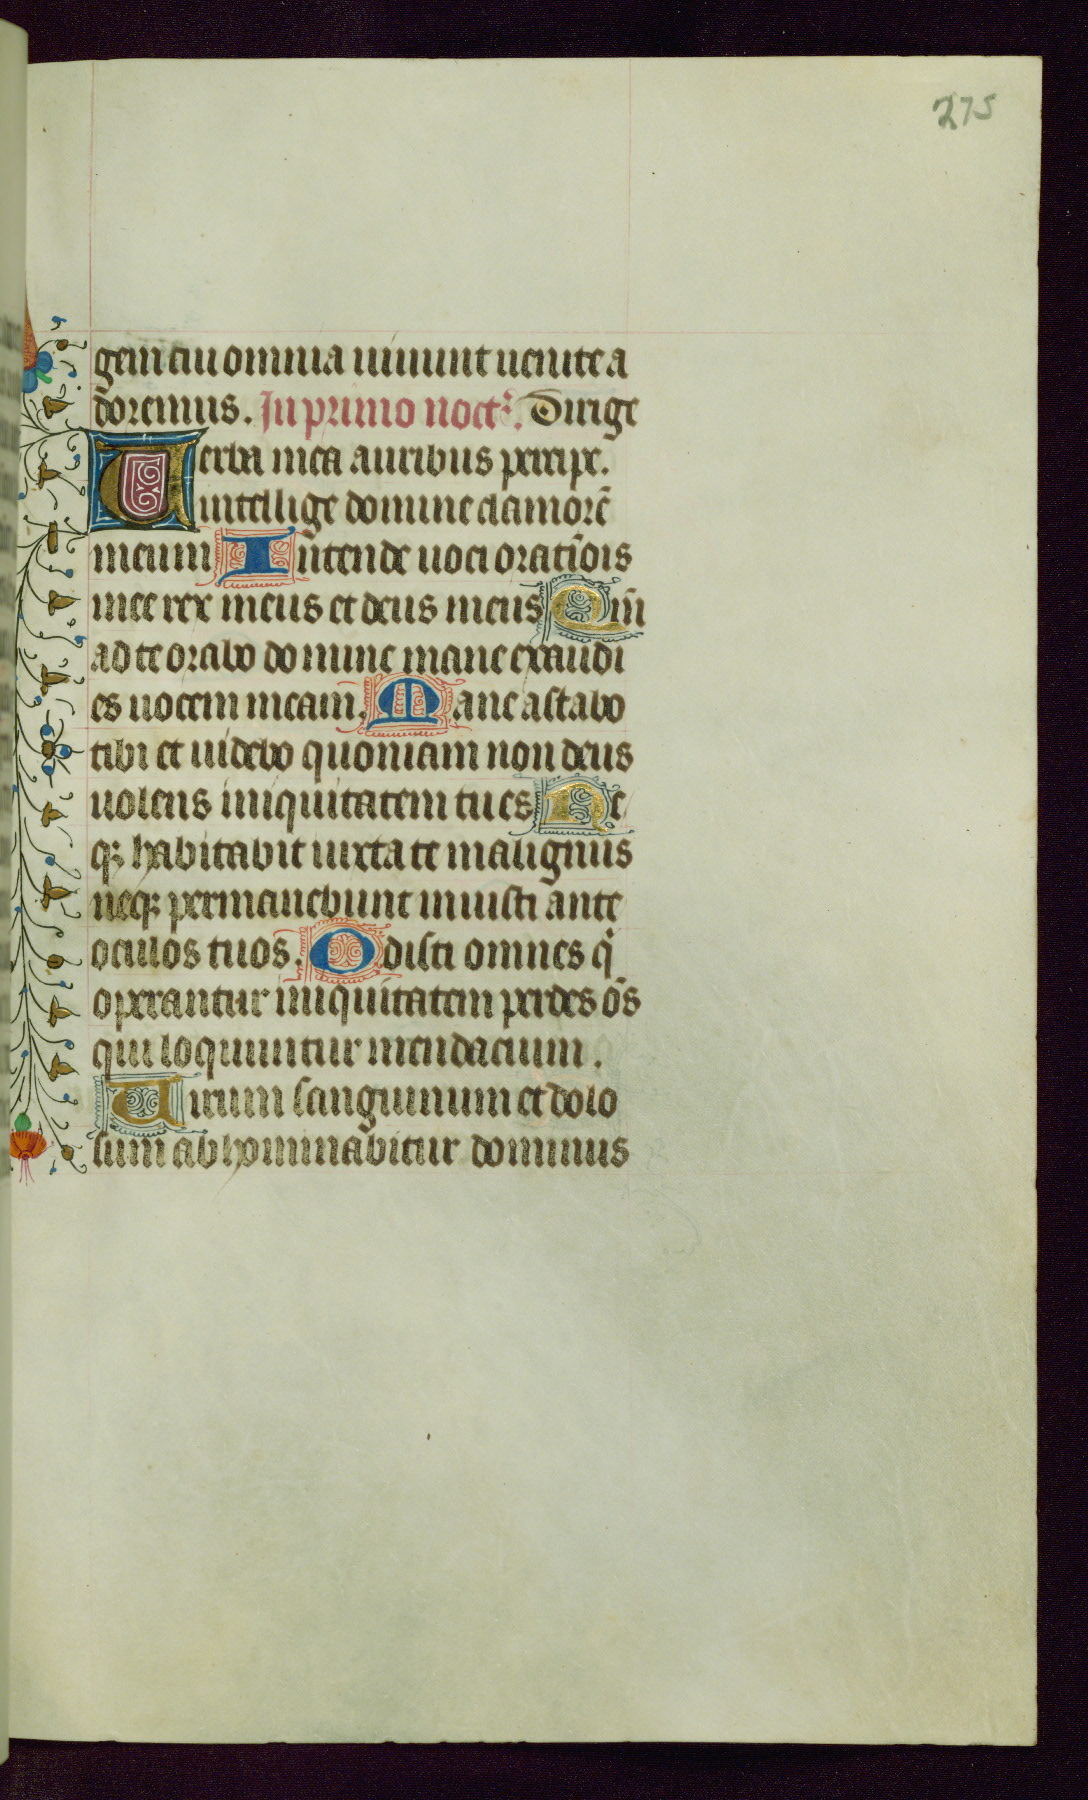 275
gem cui omnia uiuunt uenite a
doremus. In primo noct᷑. Dirige
Uerba mea auribus percipe.
intellige domine clamorē
meum Intende uoci oratiōis
mee rex meus et deus meus Qm̄
ad te orabo domine mane exaudi
es uocem meam. Mane astabo
tibi et uidebo quoniam non deus
uolens iniquitatem tu es Ne
qꝫ habitabit iuxta te malignus
neqꝫ permanebunt iniusti ante
oculos tuos. Odisti omnes q̇
operantur iniquitatem perdes oēs
qui loquuntur mendacium.
Uirum sanguinum et dolo
sum abhominabitur dominus